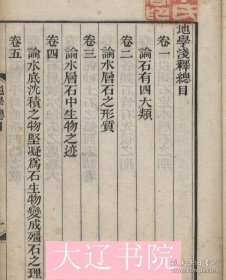 地學淺釋總目
卷一
論石有四大類
卷二
論水層石之形質
卷三
論水層石中生物之迹
卷四
論水底沈積之物堅凝爲石生物變成殭石之理
卷五
大辽书院